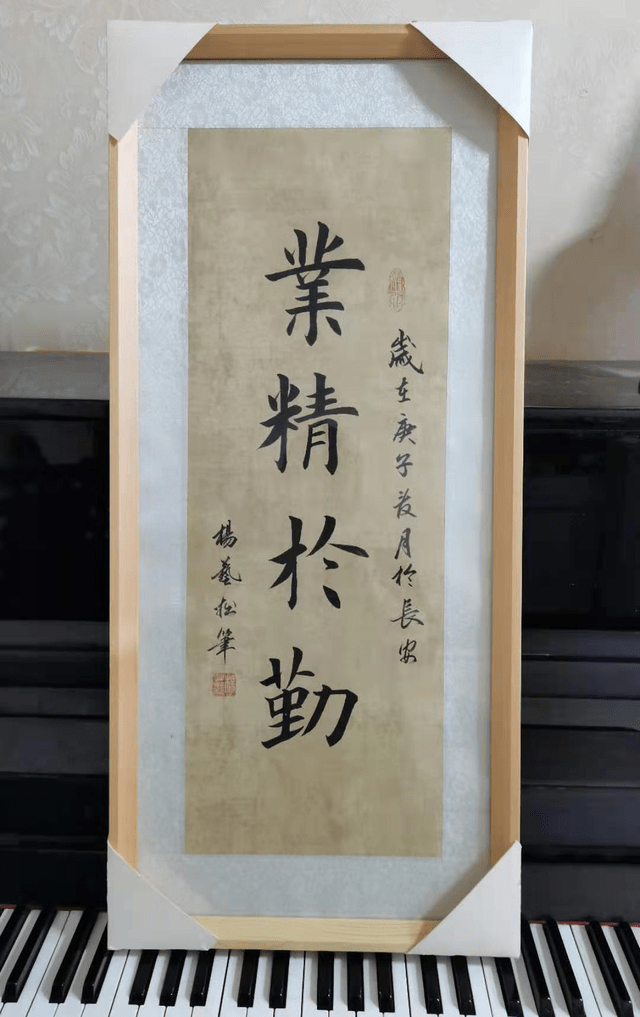 業精於勤
歲在庚子荷月於長安
楊藝松筆